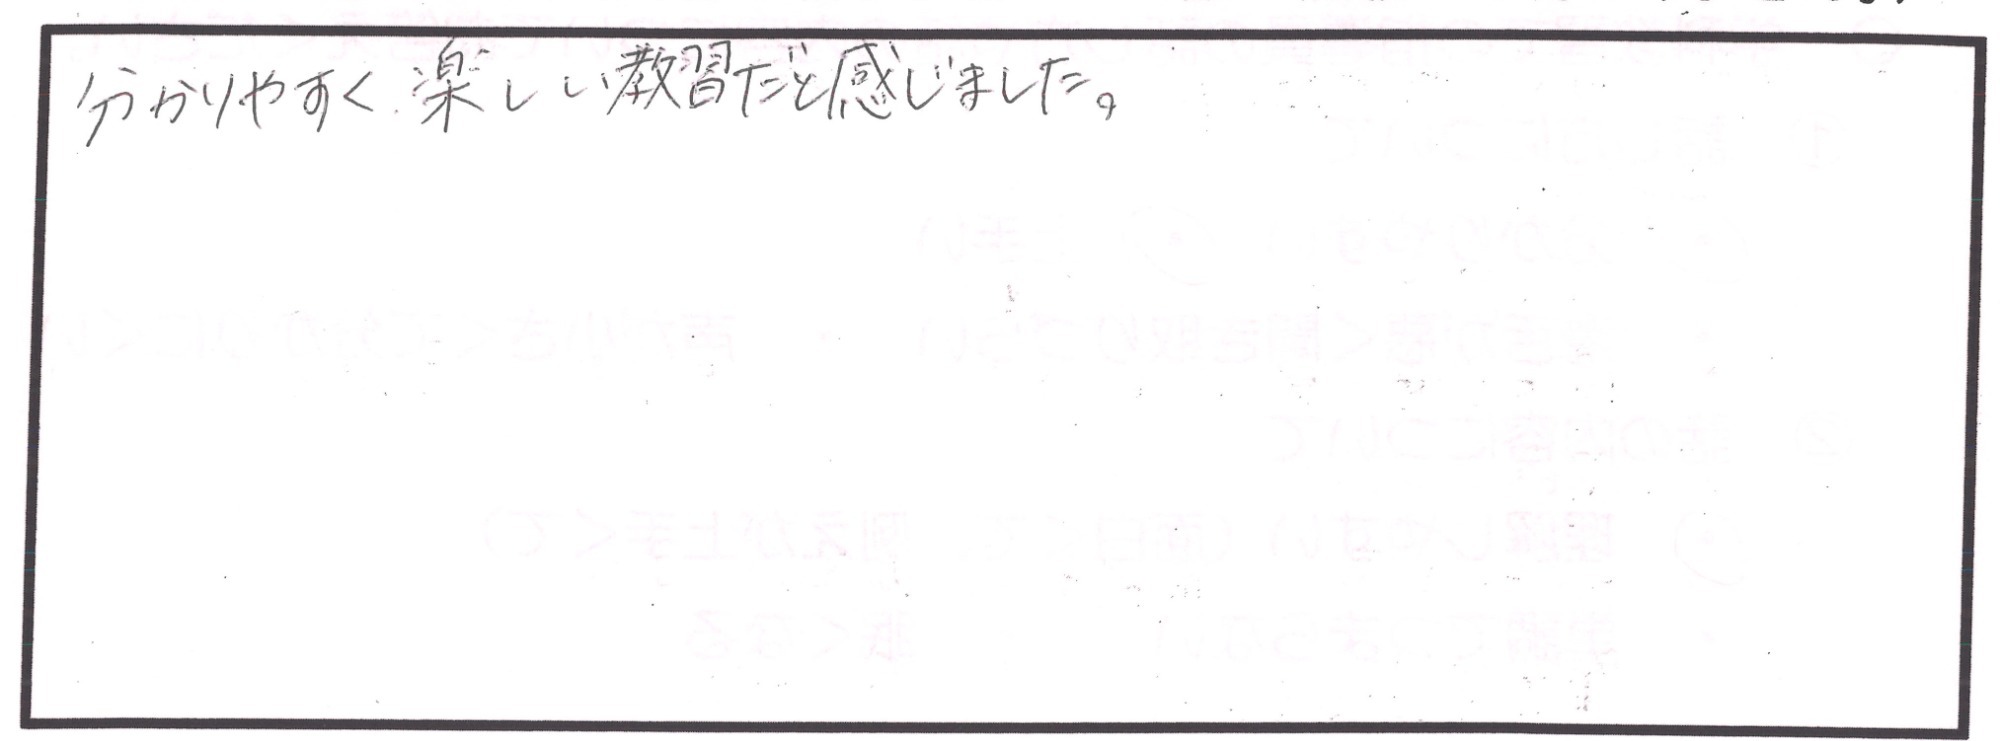 分かりやすく楽しい教習だと感じました。